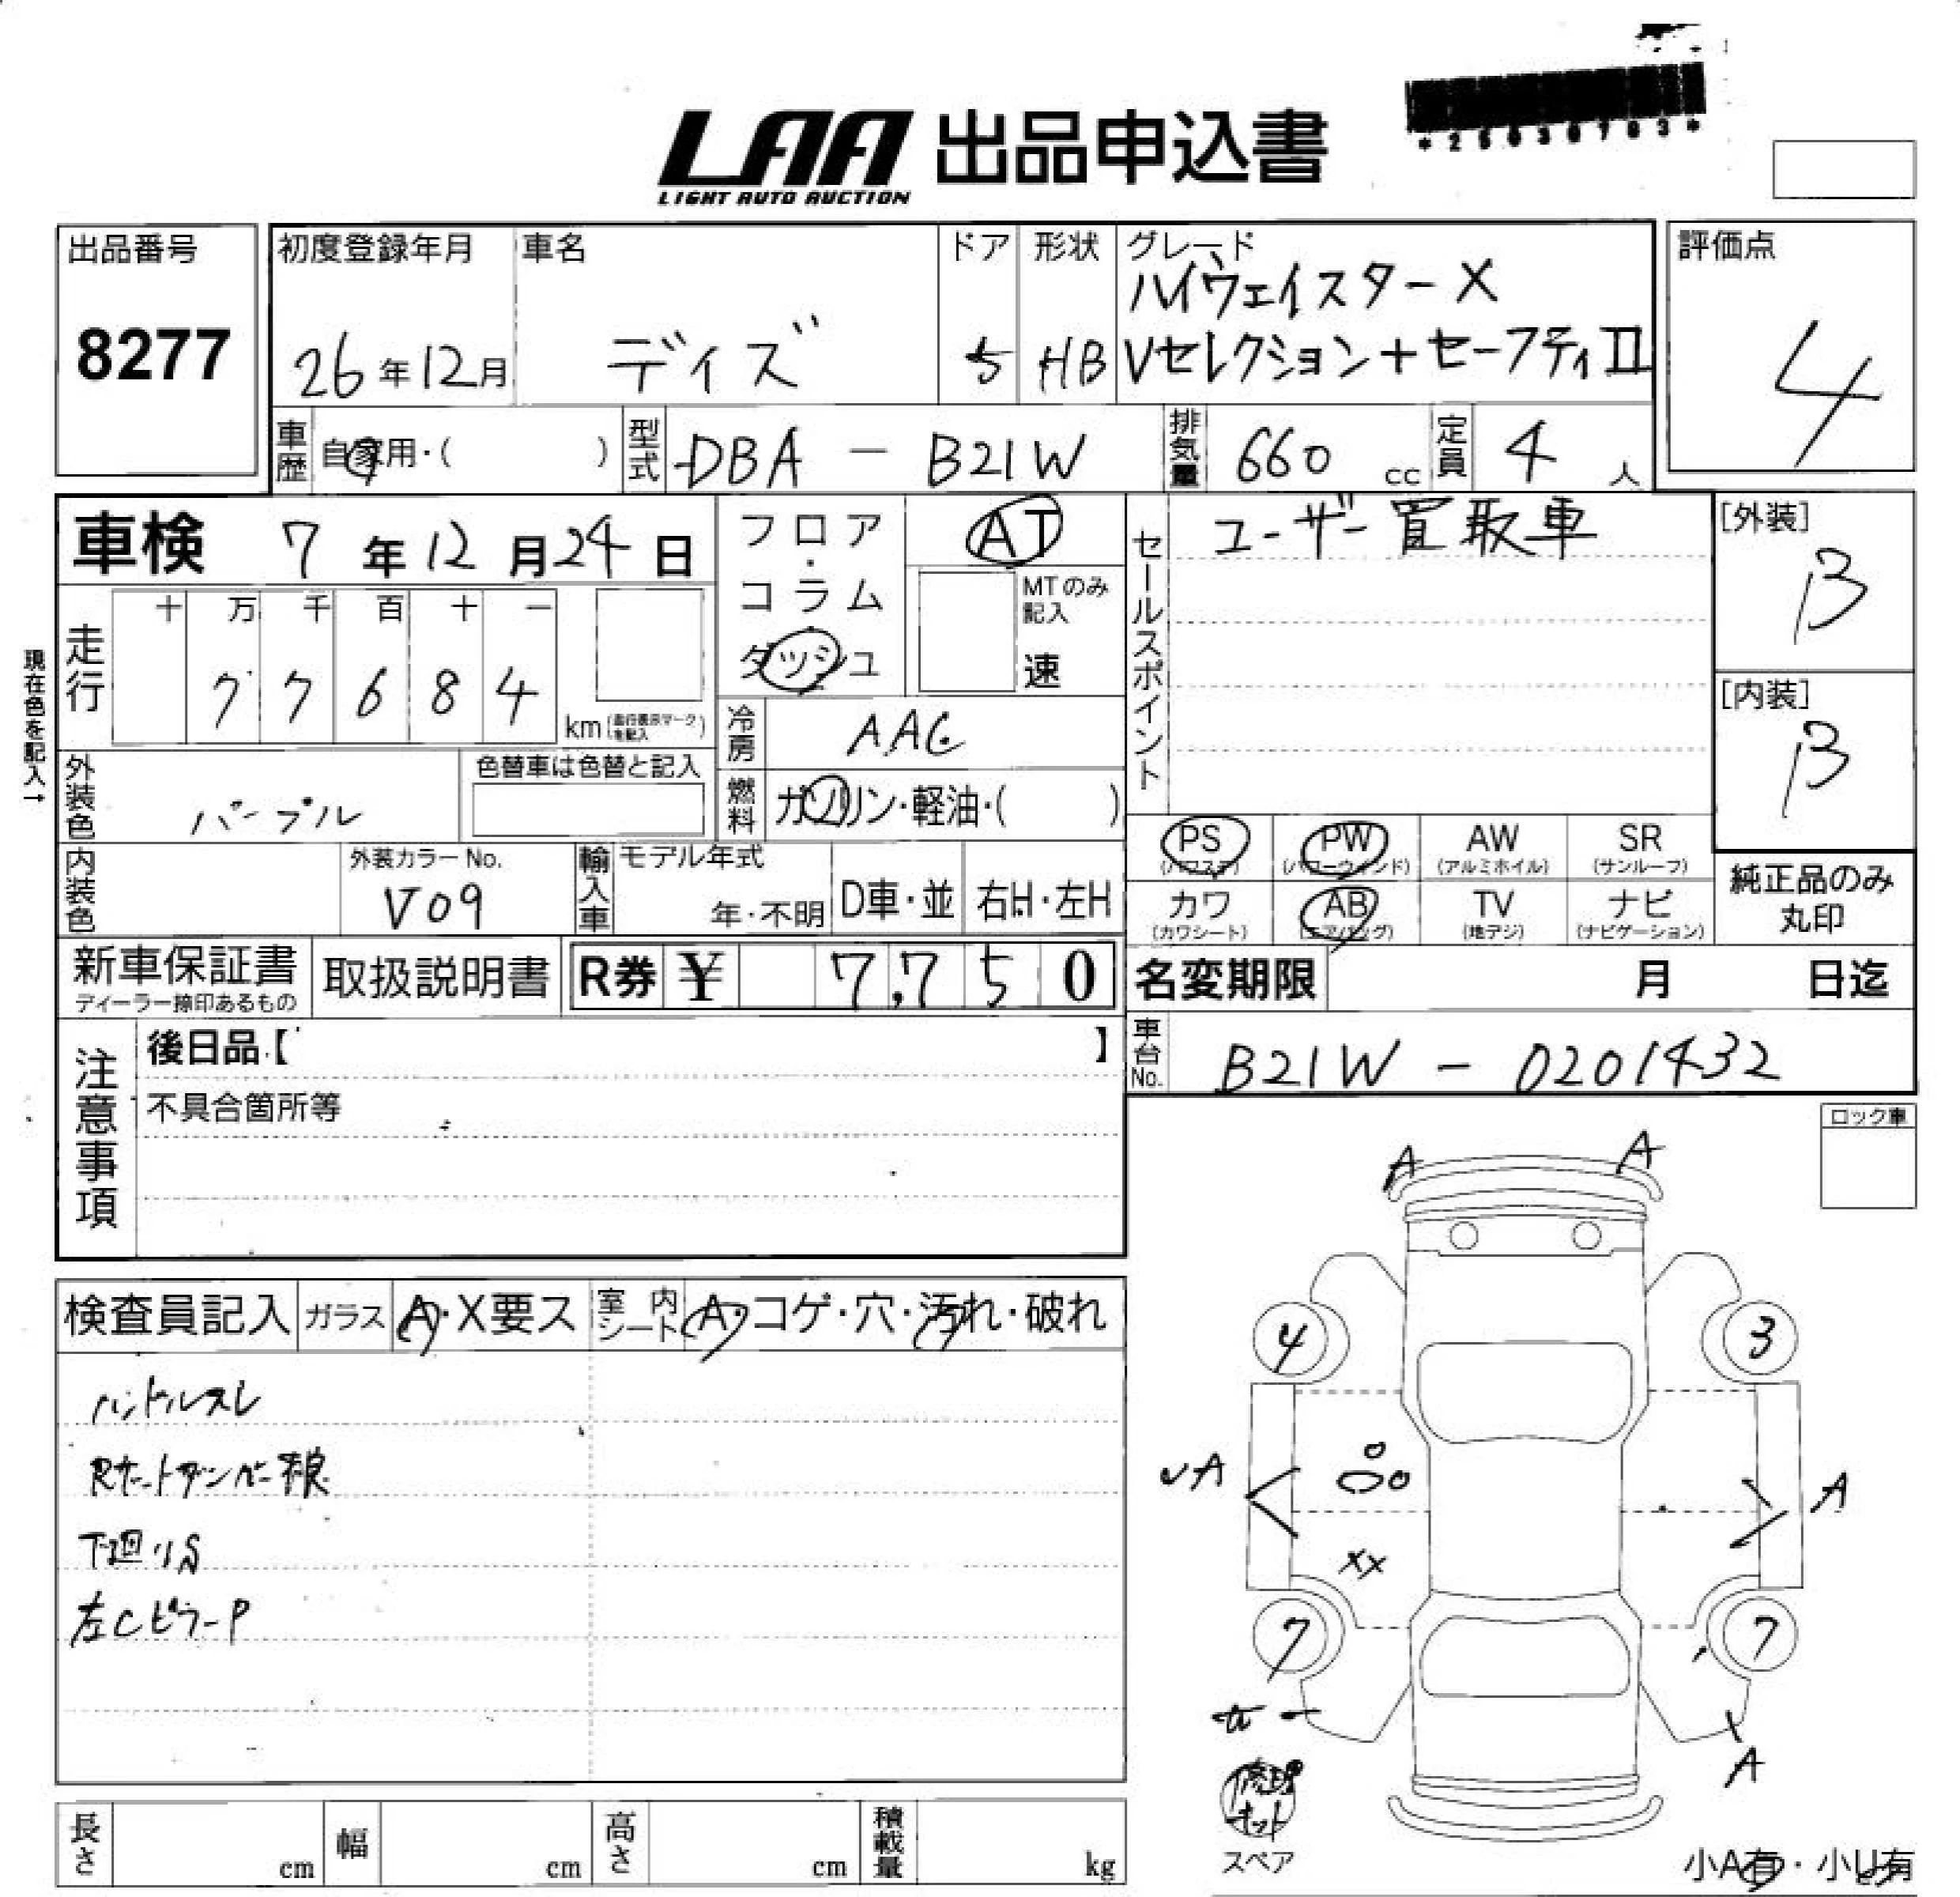 LAA 出品申込書
LIGHT AUTO AUCTION
出品番号
8277
初度登録年月
26年12月
車名
デイズ
ドア
5
形状
HB
グレード
ハイウェイスターX
Vセレクション+セーフティII
評価点
4
車歴 自家用・( )
型式 DBA - B21W
排気量 660 cc
定員 4 人
車検 7年12月24日
現在色を記入→
走行
十 万 千 百 十 一
7 7 6 8 4
km (走行表示マークを記入)
フロア・コラム・ダッシュ
AT
MTのみ記入
速
冷房 AAC
燃料 ガソリン・軽油・( )
外装色 パープル
色替車は色替と記入
内装色
外装カラーNo.
V09
輸入車
モデル年式
年・不明
D車・並
右H・左H
セールスポイント
ユーザー買取車
[外装]
B
[内装]
B
PS (パワステ)
PW (パワーウインド)
AW (アルミホイル)
SR (サンルーフ)
カワ (カワシート)
AB (エアバッグ)
TV (地デジ)
ナビ (ナビゲーション)
純正品のみ
丸印
新車保証書
ディーラー捺印あるもの
取扱説明書
R券 ¥ 7,750
名変期限 月 日迄
車台No. B21W - 0201432
注意事項
後日品【 】
不具合箇所等
ロック車
検査員記入
ガラス A・X要ス
室内シート A・コゲ・穴・汚れ・破れ
ハンドルスレ
下廻りS
左CピラーP
A A
4 3
A A
XX
7 7
A
修理キット
スペア
小A有・小U有
長さ cm
幅 cm
高さ cm
積載量 kg